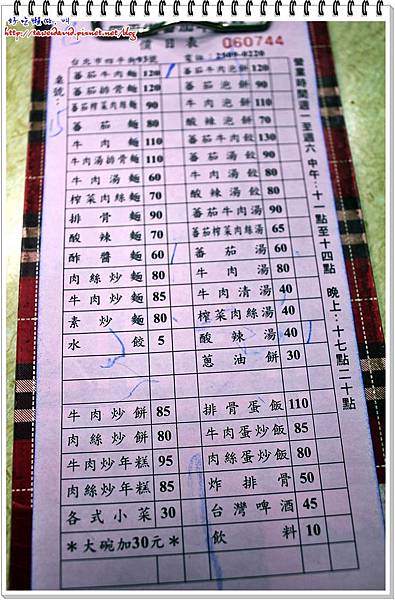 http://taweidavid.pixnet.net/blog
價目表 060744
台北市四平街93號 電話：2509-0220
桌號：15
蕃茄牛肉麵 120
蕃茄排骨麵 120
蕃茄榨菜肉絲麵 90
蕃茄麵 80
牛肉麵 110
牛肉湯排骨麵 110
牛肉湯麵 60
榨菜肉絲麵 70
排骨麵 90
酸辣麵 70
酢醬麵 60
肉絲炒麵 80
牛肉炒麵 85
素炒麵 80
水餃 5
牛肉炒餅 85
肉絲炒餅 80
牛肉炒年糕 95
肉絲炒年糕 85
各式小菜 30
＊大碗加30元＊
蕃茄牛肉泡餅 120
蕃茄泡餅 90
牛肉泡餅 110
酸辣泡餅 70
蕃茄牛肉餃 130
蕃茄湯餃 90
牛肉湯餃 80
酸辣湯餃 80
蕃茄牛肉湯 90
蕃茄榨菜肉絲湯 65
蕃茄湯 60
牛肉湯 80
牛肉清湯 40
榨菜肉絲湯 40
酸辣湯 40
蔥油餅 30
排骨蛋飯 110
牛肉蛋炒飯 85
肉絲蛋炒飯 80
炸排骨 50
台灣啤酒 45
飲料 10
營業時間週一至週六 中午：十一點至十四點 晚上：十七點二十點